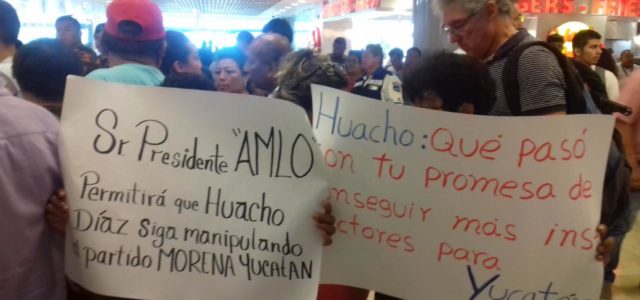 Sr. Presidente "AMLO"
Permitirá que Huacho
Díaz siga manipulando
partido MORENA YUCATÁN
Huacho: Qué pasó
on tu promesa de
nseguir más ins
ctores para
Yucatá